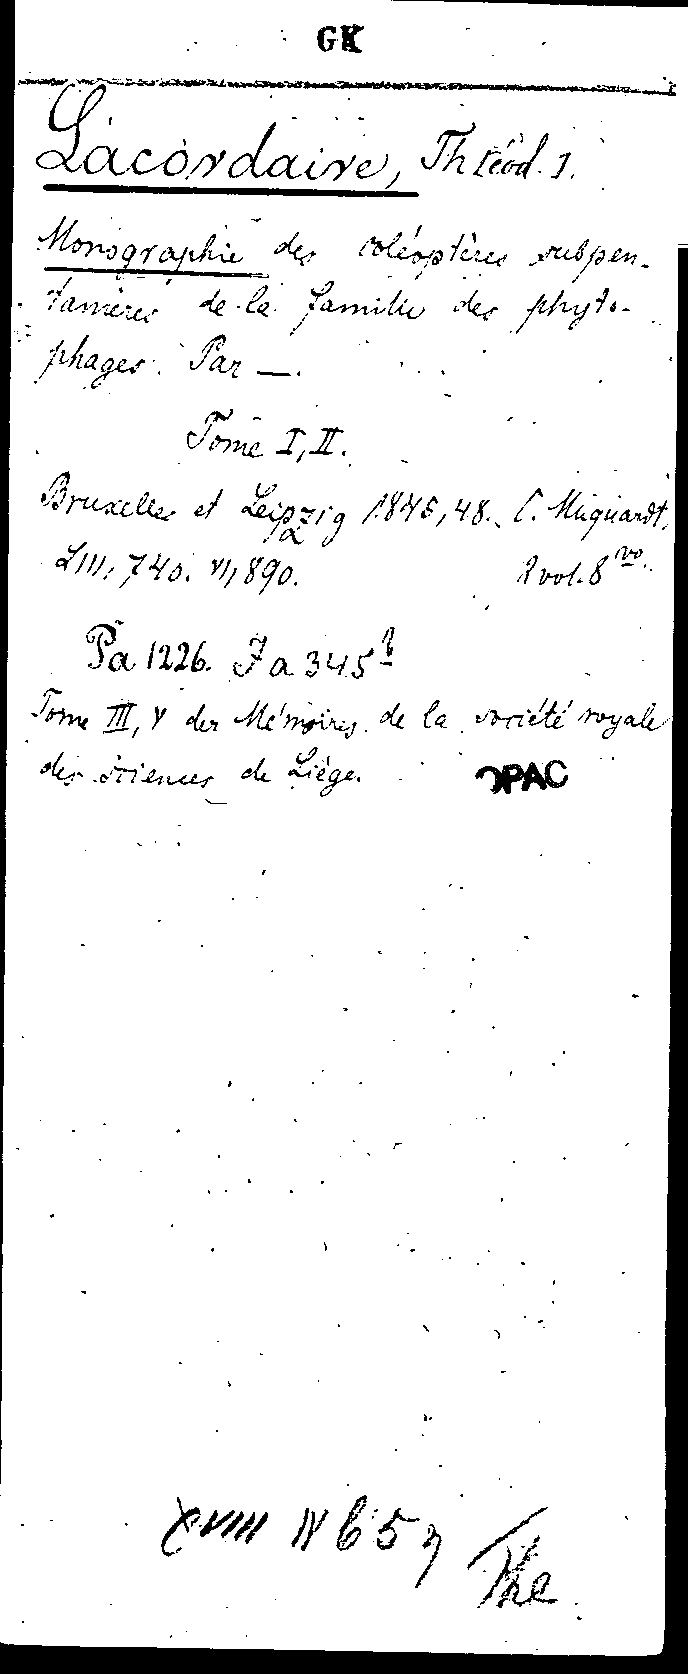 GK
Lacordaire, Théod. J.
Monographie des coléoptères subpen-
tamères de la famille des phyto-
phages. Par —.
Tome I, II.
Bruxelles et Leipzig 1845, 48. C. Muquardt,
LIII, 740. VI, 890. 2 vol. 8vo.
Pa 1226. Ja 345
Tome III, V der Mémoires de la société royale
des sciences de Liège. OPAC
XVIII N b 5
The